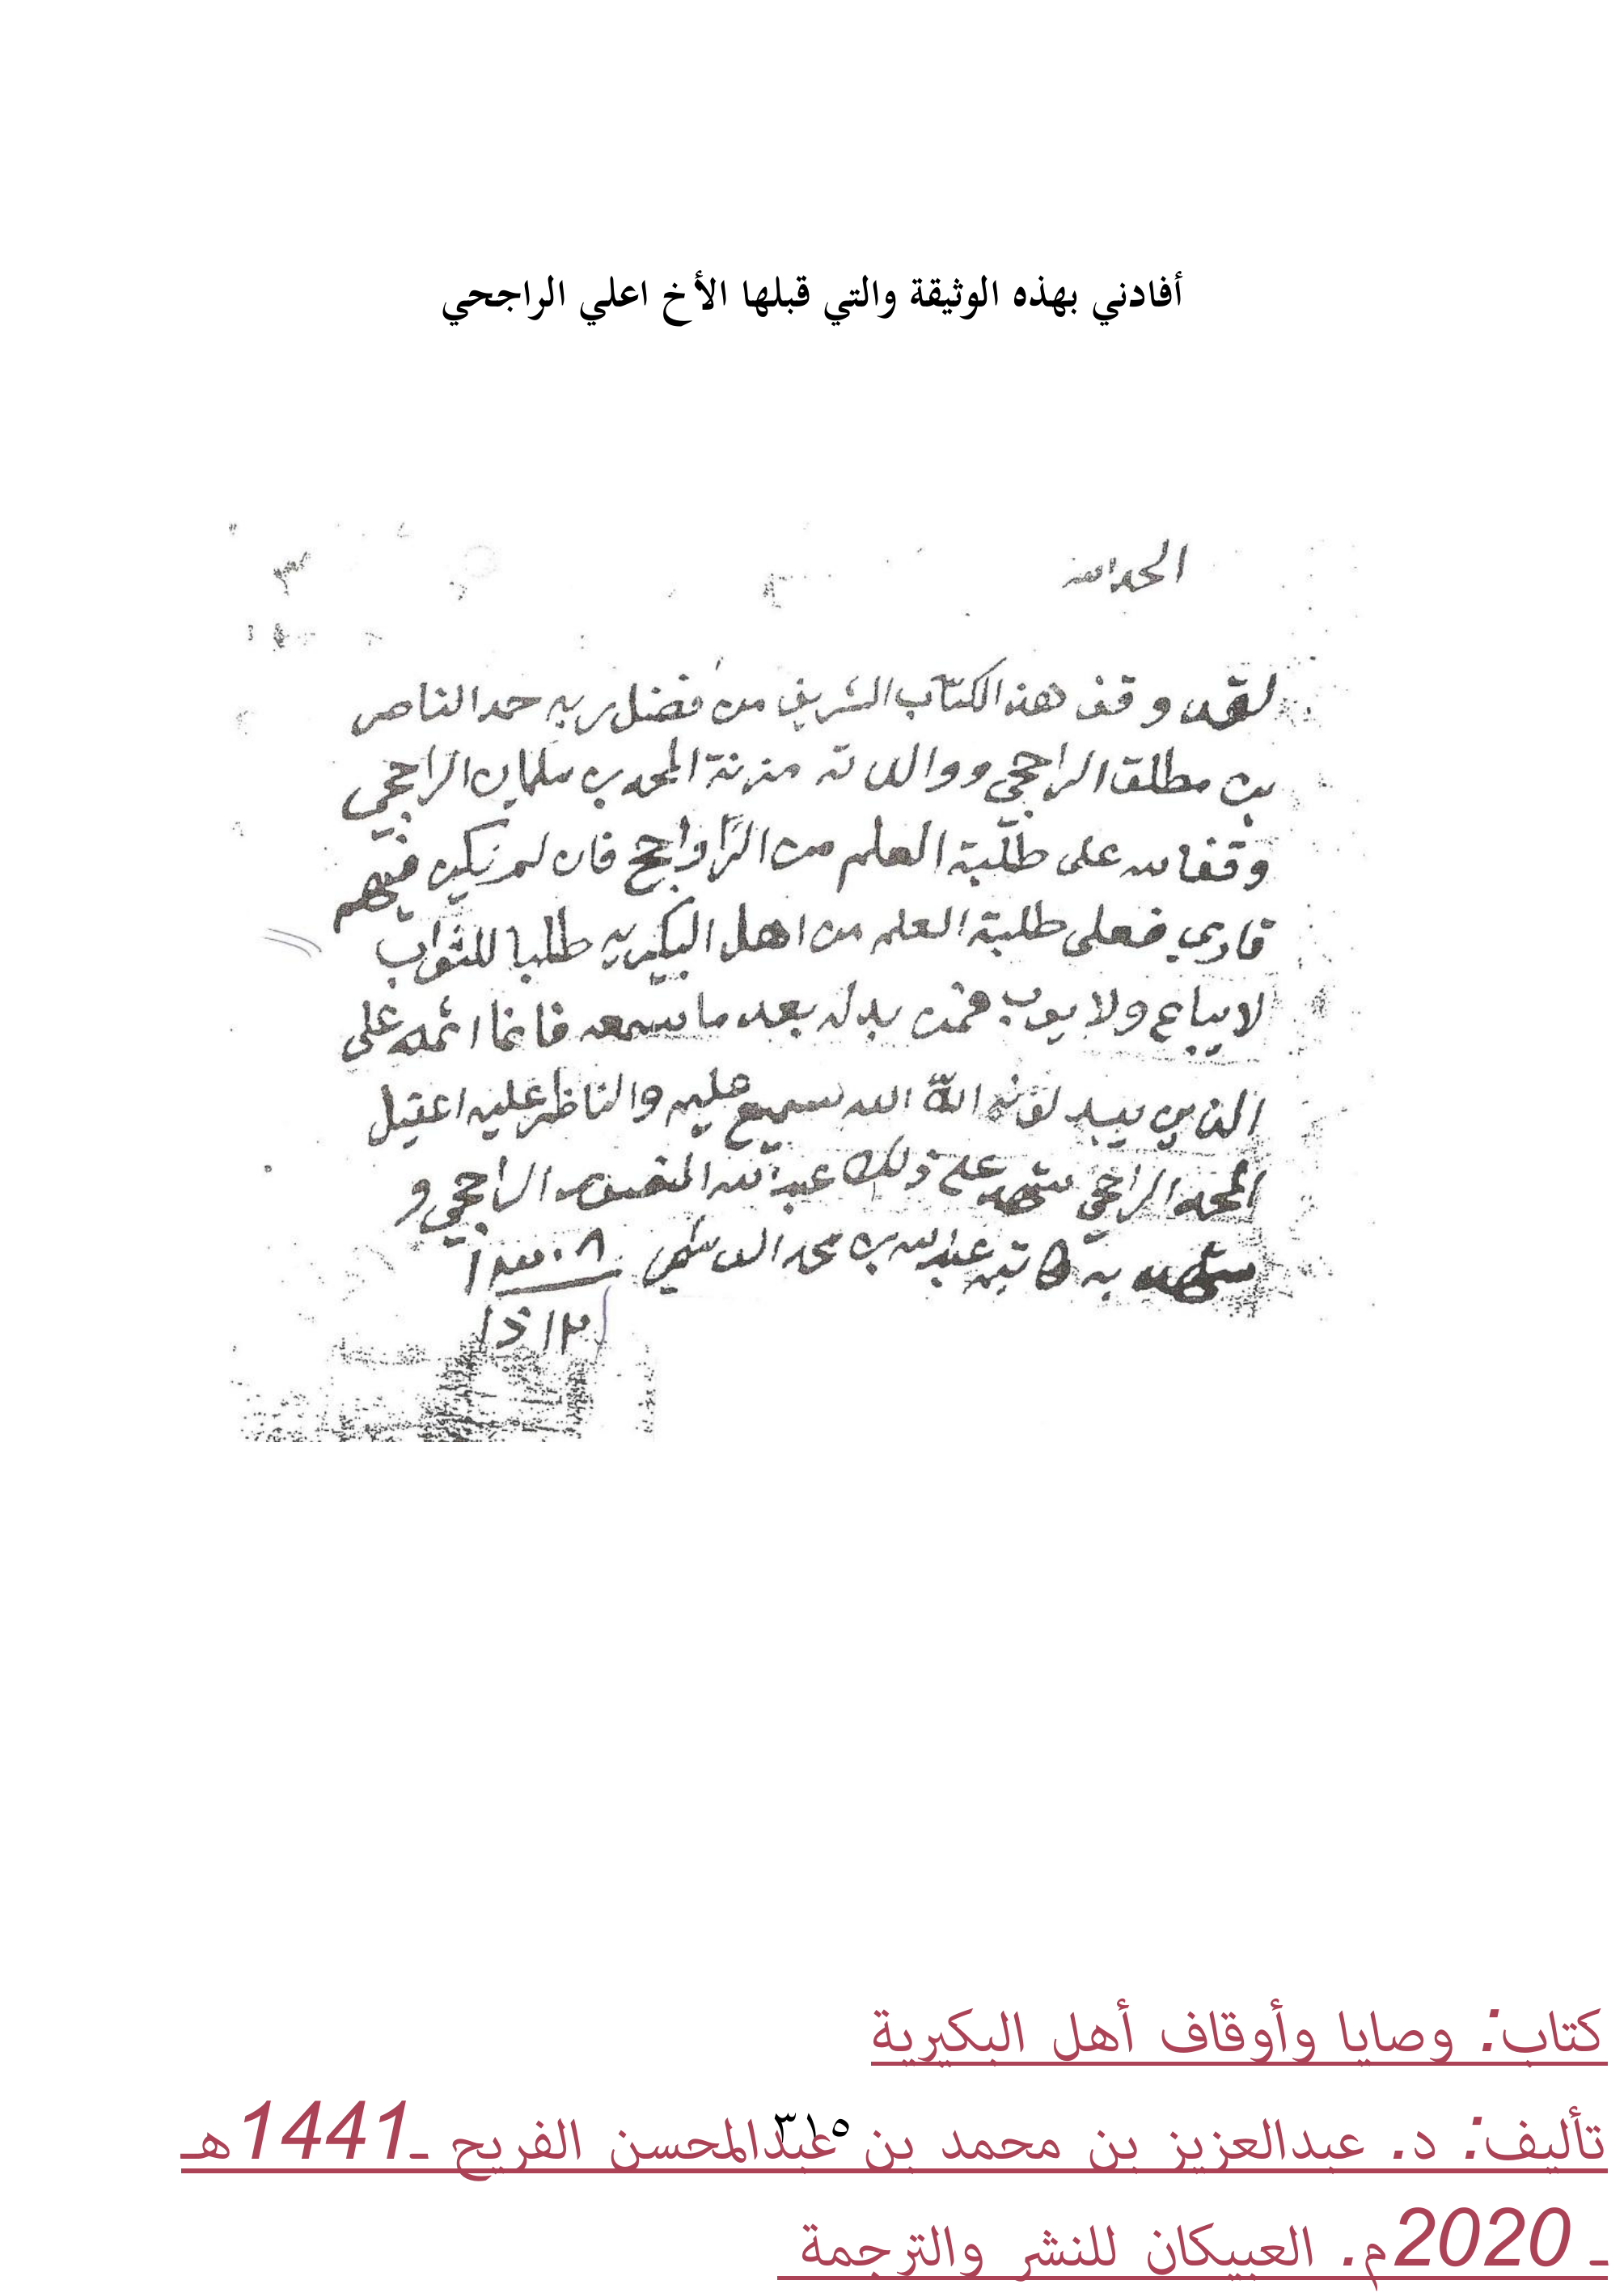 أفادني بهذه الوثيقة والتي قبلها الأخ اعلي الراجحي
الحمدالله
لقد وقف هذا الكتاب الشريف من فضل ربه حمد الناصر
بن مطلق الراجحي ووالدته مزنة المحمد بن سلمان الراجحي
وقفا لله على طلبة العلم من الرواجح فان لم يكن فيهم
قاري فعلى طلبة العلم من اهل البكيريه طلبا للثواب
لايباع ولا يوهب فمن بدله بعد ما سمعه فانما اثمه على
الذين يبدلونه ان الله سميع عليم والناظر عليه اعقيل
المحمد الراجحي شهد على ذلك عبدالله المنصور الراجحي و
شهد به كاتبه عبدالله بن محمد
٣١٥
كتاب: وصايا وأوقاف أهل البكيرية
تأليف: د. عبدالعزيز بن محمد بن عبدالمحسن الفريح ـ1441هـ
ـ 2020م. العبيكان للنشر والترجمة